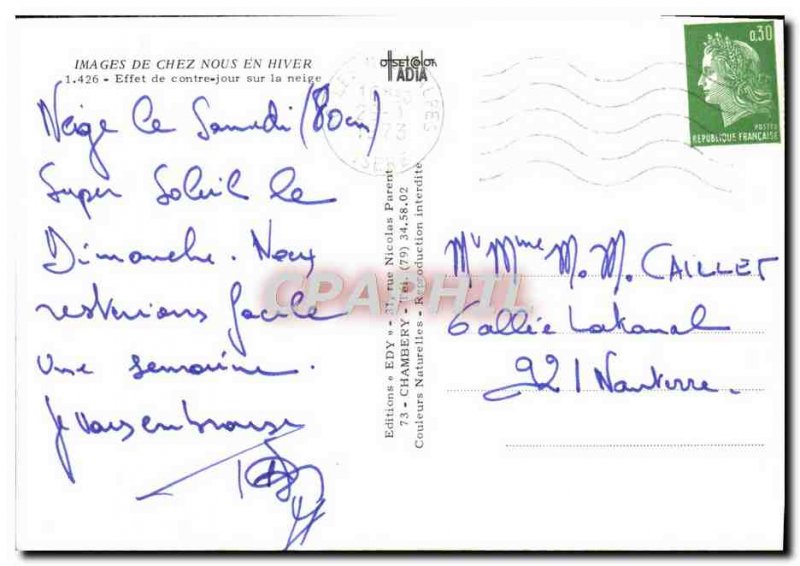 IMAGES DE CHEZ NOUS EN HIVER
1.426 - Effet de contre-jour sur la neige
Neige le Samedi (80cm)
Super Soleil le
Dimanche. Nous
resterions facile
une semaine.
Je vous embrasse
OFFSETCOLOR
IADIA
Editions « EDY » - 31, rue Nicolas Parent
73 - CHAMBERY - Tél. (79) 34.58.02
Couleurs Naturelles - Reproduction interdite
0,30
POSTES
REPUBLIQUE FRANÇAISE
Mr Mme M. M. CAILLET
6 allée Lakanal
92 / Nanterre.
CPAPHIL